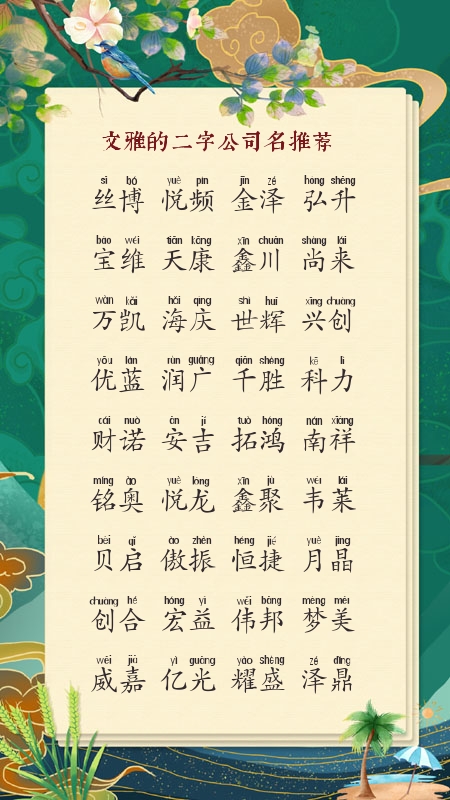 文雅的二字公司名推荐
sī bó yuè pín jīn zé hóng shēng
丝博 悦频 金泽 弘升
bǎo wéi tiān kāng xīn chuān shàng lái
宝维 天康 鑫川 尚来
wàn kǎi hǎi qìng shì huī xīng chuàng
万凯 海庆 世辉 兴创
yōu lán rùn guǎng qiān shèng kē lì
优蓝 润广 千胜 科力
cái nuò ān jí tuò hóng nán xiáng
财诺 安吉 拓鸿 南祥
míng ào yuè lóng xīn jù wéi lái
铭奥 悦龙 鑫聚 韦莱
bèi qǐ ào zhèn héng jié yuè jīng
贝启 傲振 恒捷 月晶
chuàng hé hóng yì wěi bāng mèng měi
创合 宏益 伟邦 梦美
wēi jiā yì guāng yào shèng zé dǐng
威嘉 亿光 耀盛 泽鼎